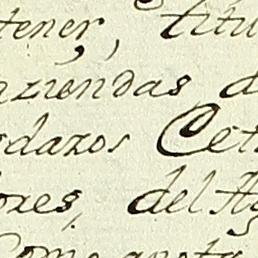 tener, titu
ziendas d
dazos Cet
ores, del Ag
Como